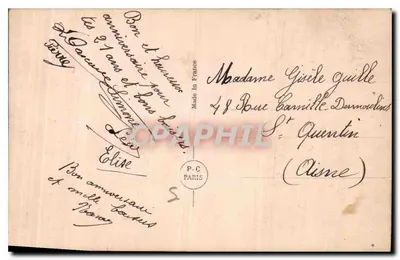 Bon et heureux
anniversaire pour
tes 21 ans et bons baisers
Elise
Bon anniversaire
et mille baisers
Made in France
P-C
PARIS
CPAPHIL.com
Madame Gisèle Quille
48 Rue Camille Desmoulins
St Quentin
(Aisne)